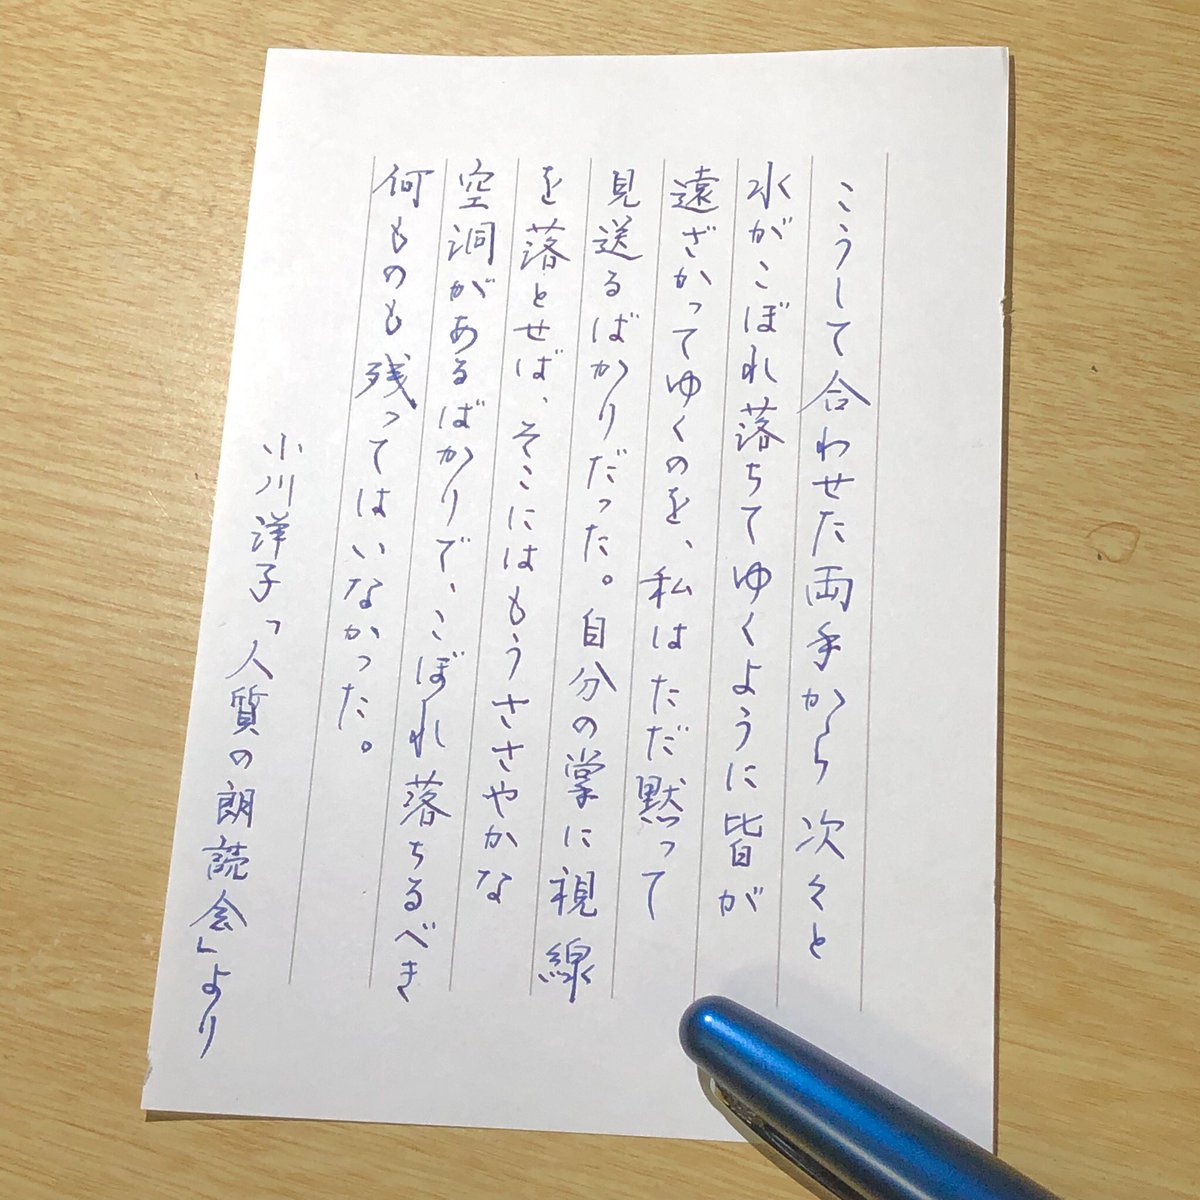 こうして合わせた両手から次々と
水がこぼれ落ちてゆくように皆が
遠ざかってゆくのを、私はただ黙って
見送るばかりだった。自分の掌に視線
を落とせば、そこにはもうささやかな
空洞があるばかりで、こぼれ落ちるべき
何ものも残ってはいなかった。
小川洋子「人質の朗読会」より